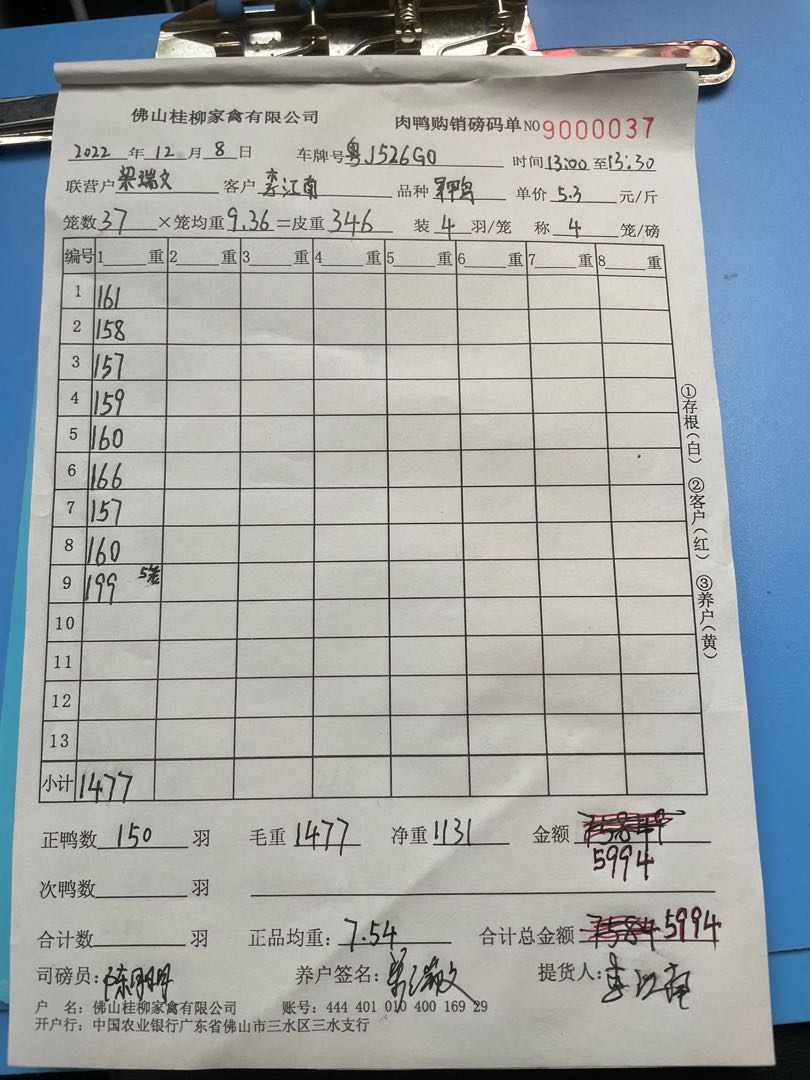 佛山桂柳家禽有限公司 肉鸭购销磅码单 NO 9000037
2022 年 12 月 8 日 车牌号 粤J526G0 时间 13:00 至 13:30
联营户 梁瑞文 客户 李江南 品种 单价 5.3 元/斤
笼数 37 ×笼均重 9.36 =皮重 346 装 4 羽/笼 称 4 笼/磅
编号 1 重 2 重 3 重 4 重 5 重 6 重 7 重 8 重
1 161
2 158
3 157
4 159
5 160
6 166
7 157
8 160
9 199
10
11
12
13
小计 1477
①存根(白) ②客户(红) ③养户(黄)
正鸭数 150 羽 毛重 1477 净重 1131 金额
5994
次鸭数 羽
合计数 羽 正品均重: 7.54 合计总金额 5994
司磅员: 养户签名: 梁瑞文 提货人: 李江南
户 名: 佛山桂柳家禽有限公司 账号: 444 401 010 400 169 29
开户行: 中国农业银行广东省佛山市三水区三水支行